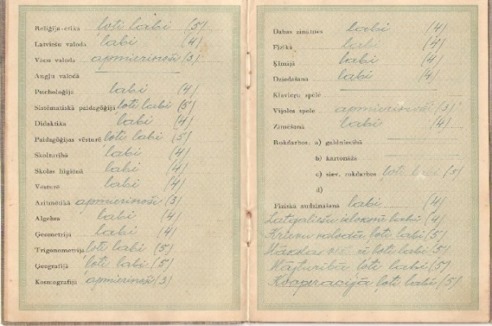 Reliģija-ētika ļoti labi (5)
Latviešu valoda labi (4)
Vācu valoda apmierinoši (3)
Angļu valodā
Psicholoģijā labi (4)
Sistēmatiskā paidagoģijā ļoti labi (5)
Didaktikā labi (4)
Paidagoģijas vēsturē ļoti labi (5)
Skolturībā labi (4)
Skolas higiēnā labi (4)
Vēsturē labi (4)
Aritmētikā apmierinoši (3)
Algebrā labi (4)
Ģeometrijā labi (4)
Trigonometrijā ļoti labi (5)
Ģeografijā ļoti labi (5)
Kosmografijā apmierinoši (3)
Dabas zinātnes labi (4)
Fizikā labi (4)
Ķīmijā labi (4)
Dziedāšanā labi (4)
Klavieŗu spēlē
Vijoles spēle apmierinoši (3)
Zīmēšanā labi (4)
Rokdarbos: a) galdniecībā
b) kartonāžā
c) siev. rokdarbos ļoti labi (5)
d)
Fiziskā audzināšanā labi (4)
Latgaliešu izloksnē labi (4)
Krievu valodā ļoti labi (5)
ļoti labi (5)
Mājturībā ļoti labi (5)
Kooperācijā ļoti labi (5)